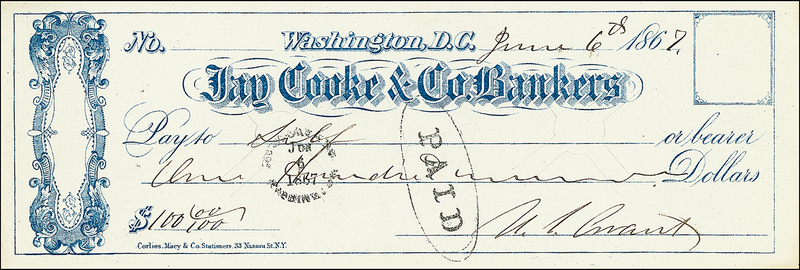 No. Washington, D.C. June 6th 1867.
Jay Cooke & Co. Bankers
Pay to Self or bearer
One Hundred Dollars
$100 00/100 U. S. Grant
Corlies, Macy & Co. Stationers. 33 Nassau St. N.Y.
JUN
6
1867
PAID